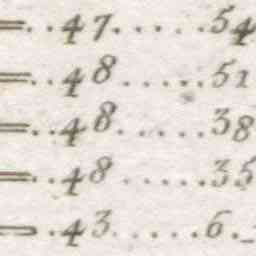 =..47.....54
=..48.....51
=..48.....38
=..48.....35
=.43.....6.-